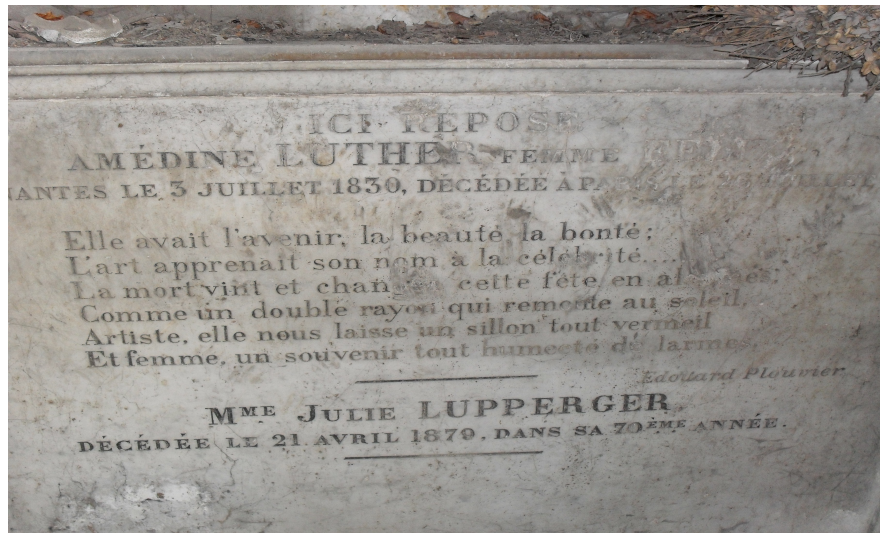 ICI REPOSE
AMÉDINE LUTHER FEMME
NANTES LE 3 JUILLET 1830, DÉCÉDÉE À PARIS LE
Elle avait l'avenir, la beauté, la bonté;
L'art apprenait son nom à la célébrité....
La mort vint et changea cette fête en alarmes:
Comme un double rayon qui remonte au soleil,
Artiste, elle nous laisse un sillon tout vermeil
Et femme, un souvenir tout humecté de larmes.
Edouard Plouvier
MME JULIE LUPPERGER
DÉCÉDÉE LE 21 AVRIL 1879, DANS SA 70ÈME ANNÉE.